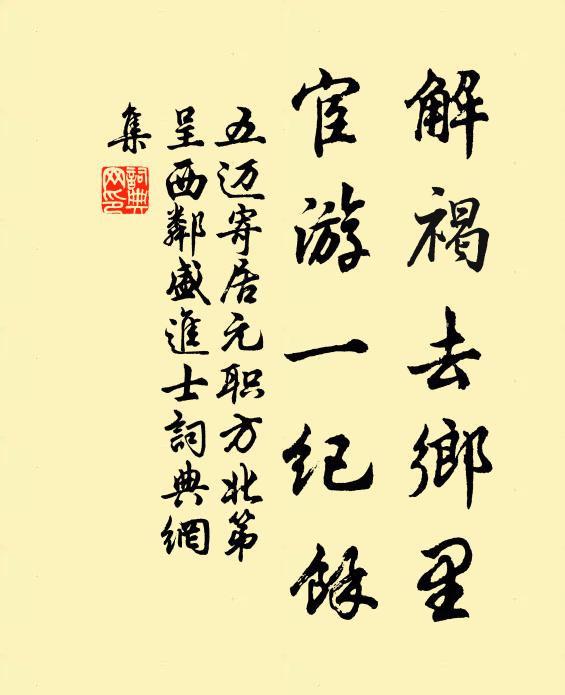 解褐去鄉里
宦游一纪餘
五迈寄居元职方北第
呈西鄰盛進士詞典網
集
詞典
网印